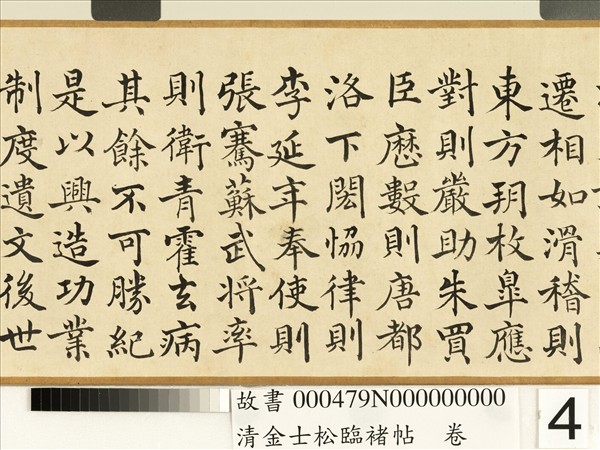 遷相如滑稽則
東方朔枚皐應
對則嚴助朱買
臣厯數則唐都
洛下閎恊律則
李延年奉使則
張騫蘇武將率
則衛青霍去病
其餘不可勝紀
是以興造功業
制度遺文後世
故書 000479N000000000
清金士松臨褚帖 卷
4